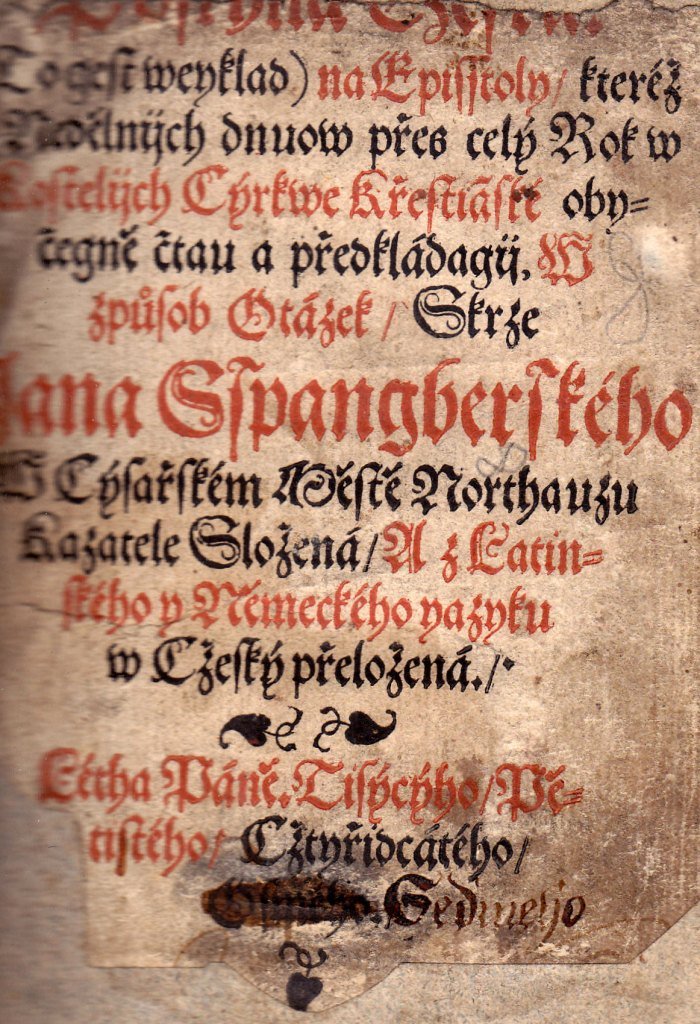 Postylla Czeská.
To gest weyklad) na Episstoly / kteréž
Nedělnijch dnuow přes celý Rok w
Kostelijch Cýrkwe Křestiāské oby=
čegně čtau a předkládagij. W
způsob Otázek / Skrze
Jana Sspangberského
W Cýsařském Městě Northauzu
Kazatele Složená / A z Latin=
ského y Německého yazyku
w Cžeský přeložená. /.
Létha Páně. Tisýcýho / Pě=
tistého / Cžtyřidcátého /
Osmého. Sedmeho